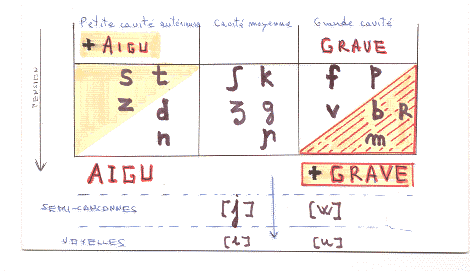 Petite cavité antérieure Cavité moyenne Grande cavité
+ AIGU GRAVE
s t ʃ k f p
z d ʒ g v b R
n ɲ m
TENSION
AIGU + GRAVE
SEMI-CONSONNES [j] [w]
VOYELLES [i] [u]